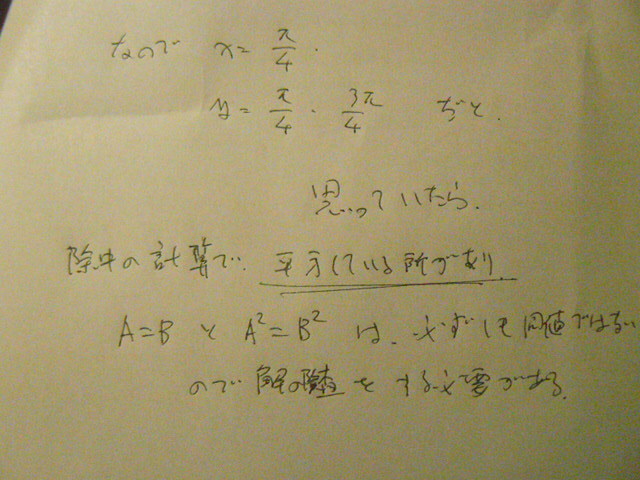 なので x = π/4.
y = π/4 . 3π/4 だと.
思っていたら.
途中の計算で. 平方している所があり.
A=B と A²=B² は. 必ずしも同値ではない
ので 解の をする必要がある.